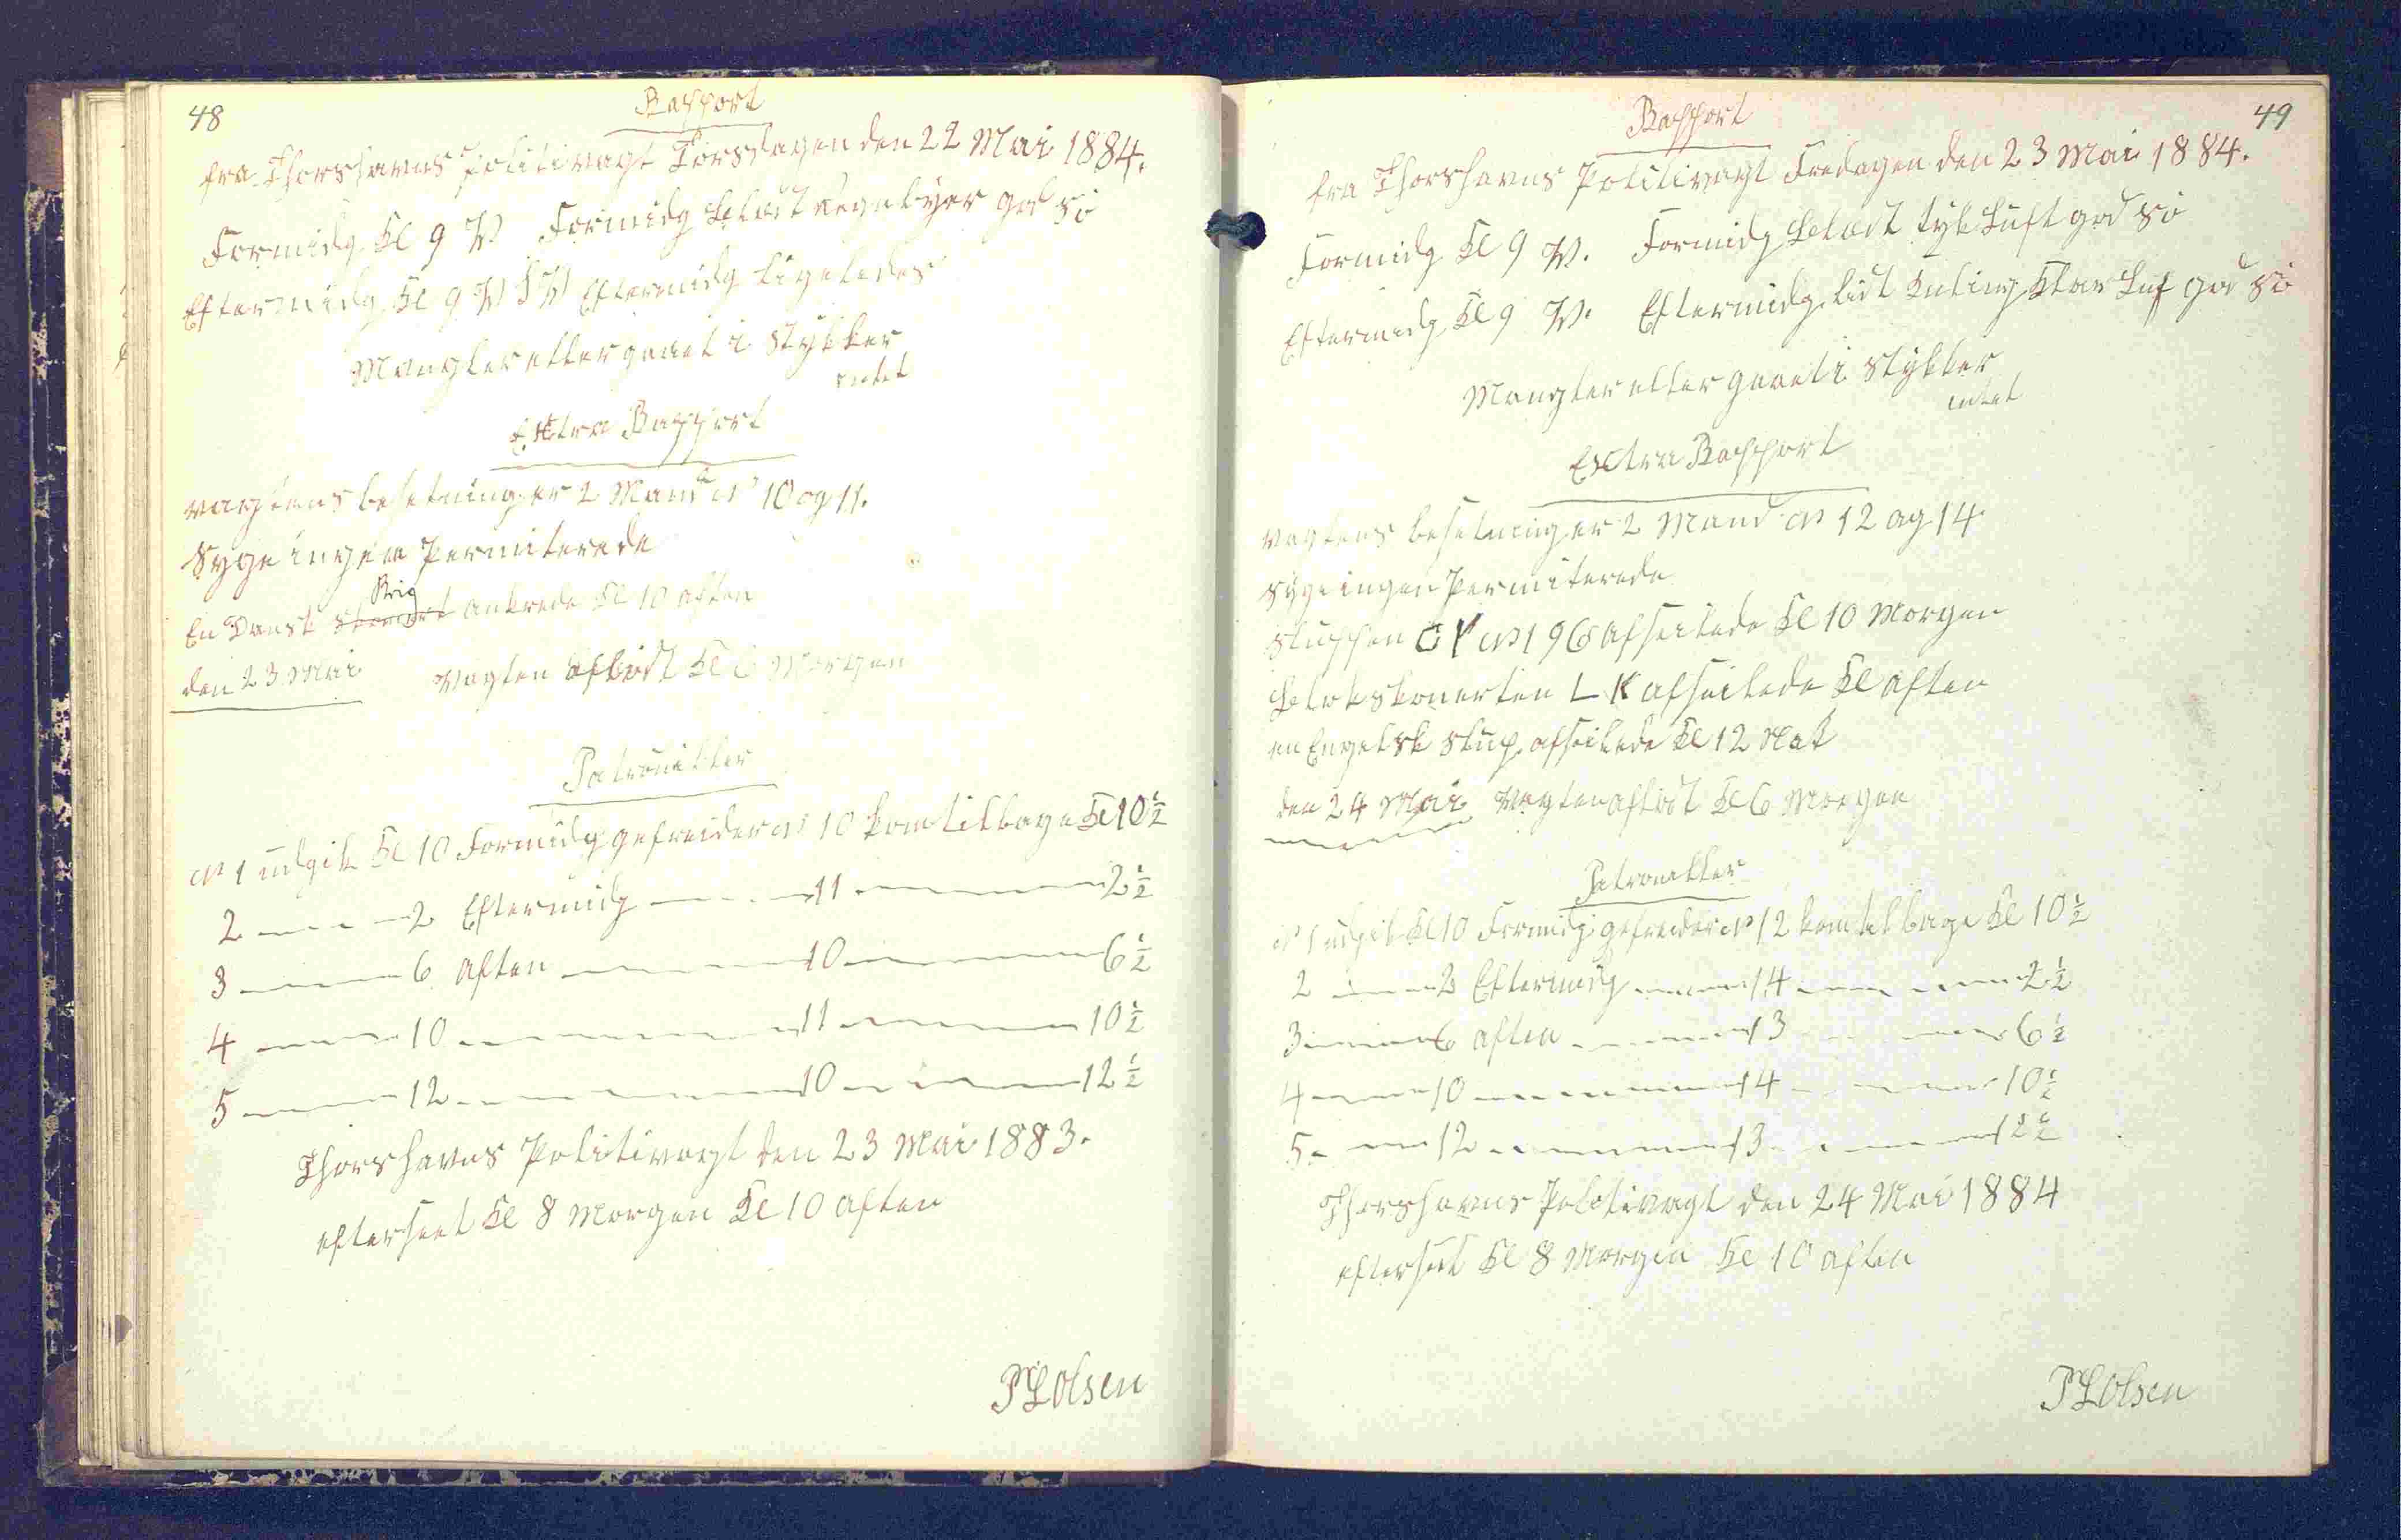 48
Rapport
fra Thorshavns Politivagt Torsdagen den 22 Mai 1884.
Formidg Kl 9 V Formidg Slædt Regnbyer god sö
Eftermidg Kl 9 V S V Eftermidg ligeledes
Mangler eller gaaet i Stykker
intet
Extra Rapport
vagtens besetning er 2 Mand No 10 og 11.
Syge ingen Permiterede
Brig
En Dansk ankrede Kl 10 aften
den 23 Mai Vagten aflöst Kl 6 Morgen
Patrouiller
No 1 udgik Kl 10 Formidg gefreider No 10 kom tilbage Kl 10 1/2
2 — 2 Eftermidg — 11 — 2 1/2
3 — 6 aften — 10 — 6 1/2
4 — 10 — 11 — 10 1/2
5 — 12 — 10 — 12 1/2
Thorshavns Politivagt den 23 Mai 1883.
efterseet Kl 8 Morgen Kl 10 aften
PLOlsen
49
Rapport
fra Thorshavns Politivagt Fredagen den 23 Mai 1884.
Formidg Kl 9 V. Formidg Slædt tyk Luft god sö
Eftermidg Kl 9 V. Eftermidg lidt Kuling Klar Luf god sö
Mangler eller gaaet i Stykker
intet
Extra Rapport
vagtens besetning er 2 Mand No 12 og 14
syge ingen Permiterede
sluppen No 196 afseilede Kl 10 Morgen
Slotskonerten L K afseilede Kl aften
en Engelsk slup afseilede Kl 12 Nat
den 24 Mai Vagten aflöst Kl 6 Morgen
Patrouiller
No 1 udgik Kl 10 Formidg gefreider No 12 kom tilbage Kl 10 1/2
2 — 2 Eftermidg — 14 — 2 1/2
3 — 6 aften — 13 — 6 1/2
4 — 10 — 14 — 10 1/2
5 — 12 — 13 — 12 1/2
Thorshavns Politivagt den 24 Mai 1884
efterseet Kl 8 Morgen Kl 10 aften
PLOlsen